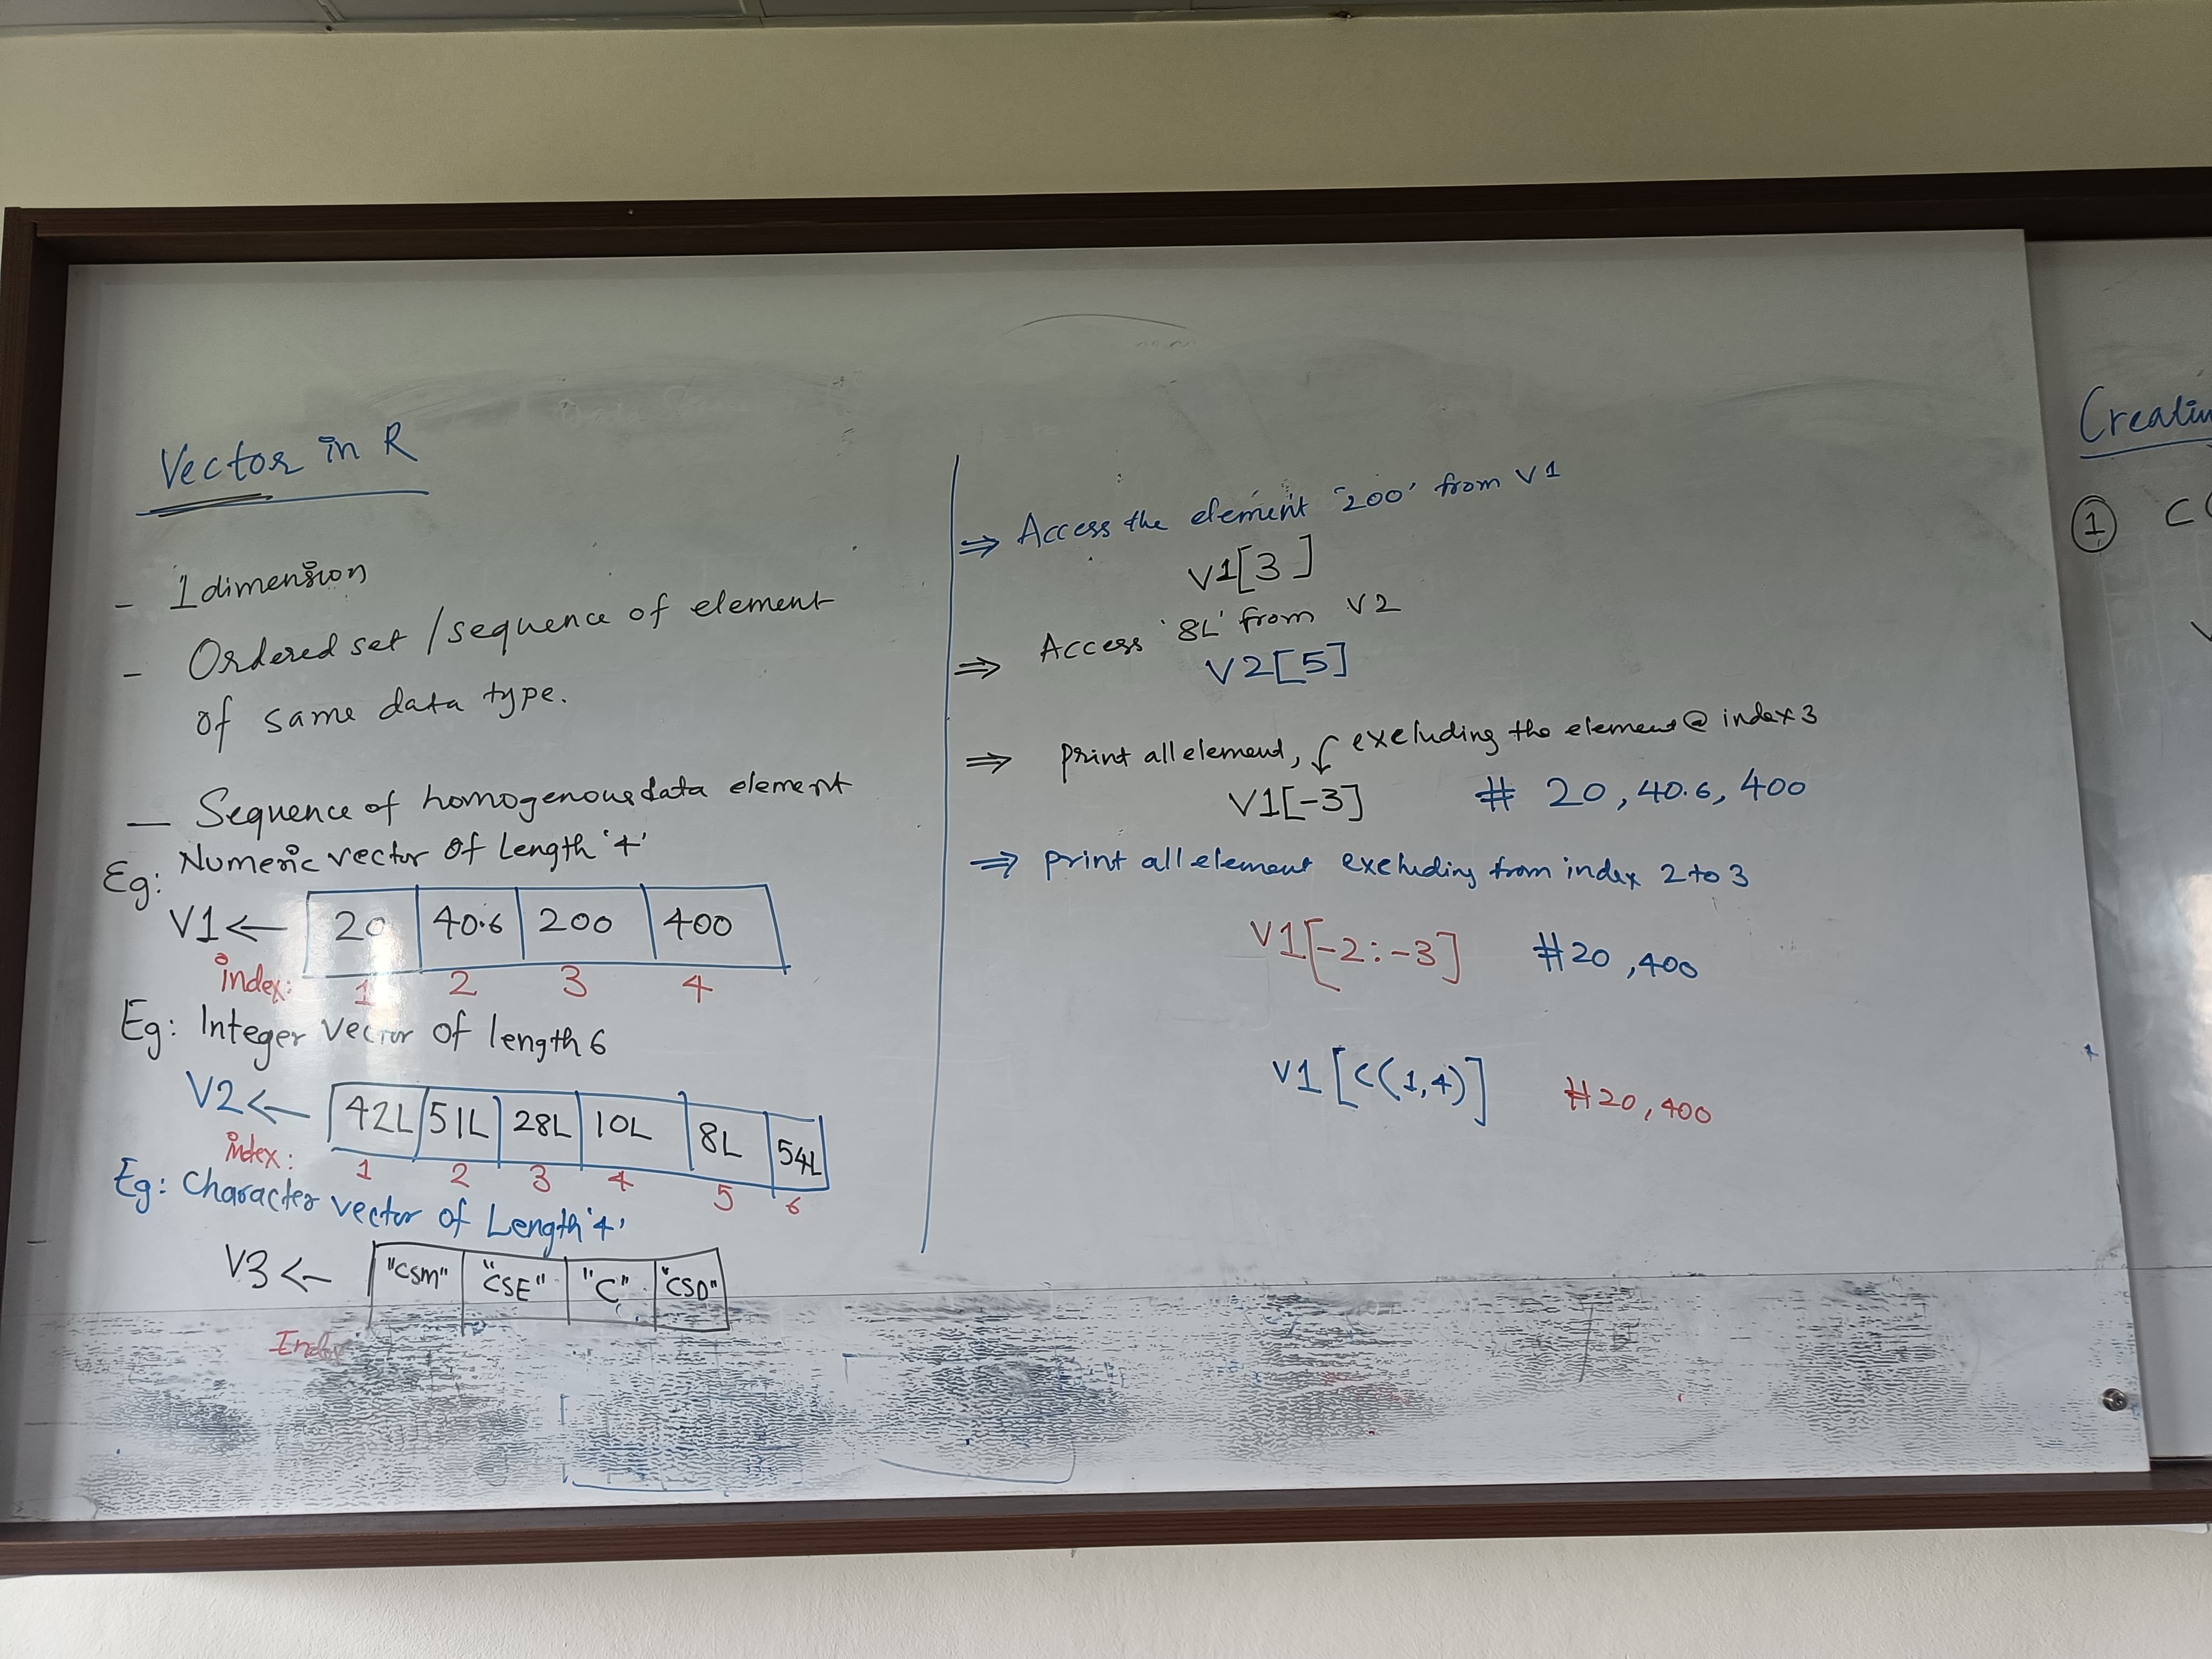 Vector in R
- 1 dimension
- Ordered set / sequence of element
of same data type.
- Sequence of homogenous data element
Eg: Numeric vector of Length '4'
V1 ← 20 40.6 200 400
index: 1 2 3 4
Eg: Integer vector of length 6
V2 ← 42L 51L 28L 10L 8L 54L
index: 1 2 3 4 5 6
Eg: Character vector of Length '4'
V3 ← "CSM" "CSE" "C" "CSD"
Index
⇒ Access the element '200' from V1
V1[3]
⇒ Access '8L' from V2
V2[5]
⇒ print all element, excluding the element @ index 3
V1[-3] # 20, 40.6, 400
⇒ print all element excluding from index 2 to 3
V1[-2:-3] # 20, 400
V1[c(1,4)] # 20, 400
① C(